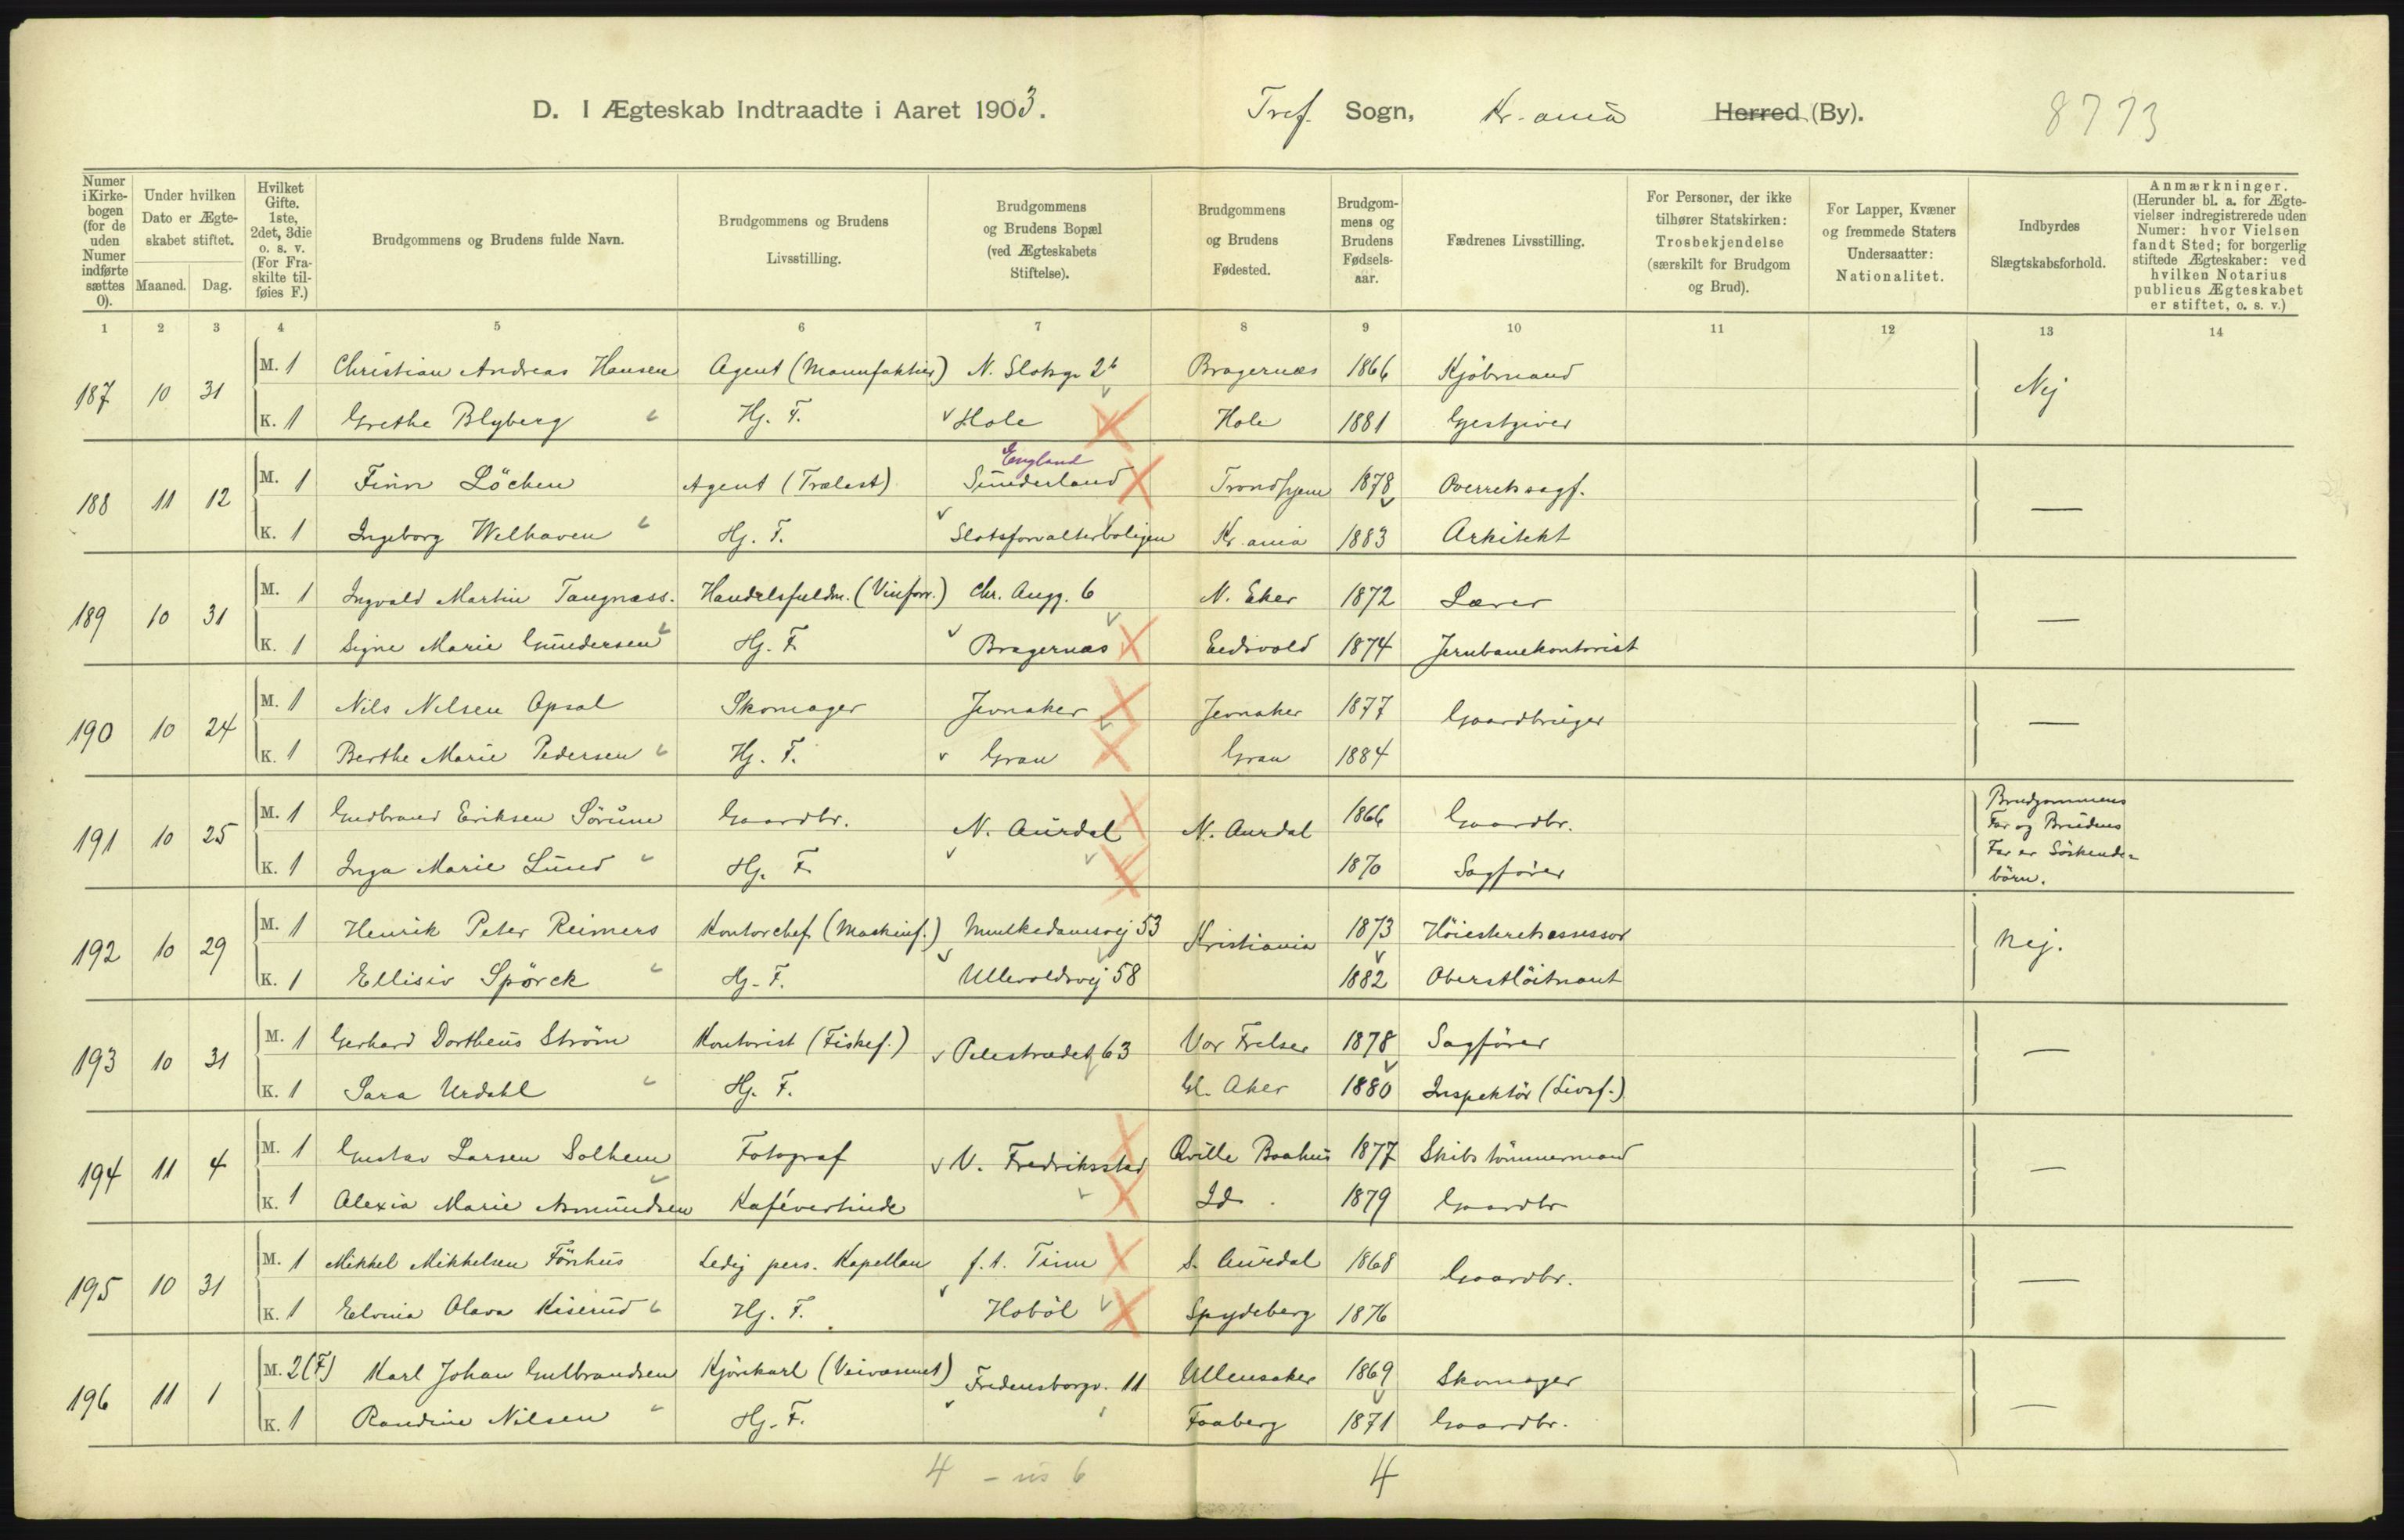 D. I Ægteskab Indtraadte i Aaret 1903. Tref. Sogn, Kr.ania Herred (By). 8773
Numer i Kirkebogen (for de uden Numer indførte sættes 0).
Under hvilken Dato er Ægteskabet stiftet.
Maaned. Dag.
Hvilket Gifte. 1ste, 2det, 3die o. s. v. (For Fraskilte tilføies F.)
Brudgommens og Brudens fulde Navn.
Brudgommens og Brudens Livsstilling.
Brudgommens og Brudens Bopæl (ved Ægteskabets Stiftelse).
Brudgommens og Brudens Fødested.
Brudgommens og Brudens Fødselsaar.
Fædrenes Livsstilling.
For Personer, der ikke tilhører Statskirken: Trosbekjendelse (særskilt for Brudgom og Brud).
For Lapper, Kvæner og fremmede Staters Undersaatter: Nationalitet.
Indbyrdes Slægtskabsforhold.
Anmærkninger. (Herunder bl. a. for Ægtevielser indregistrerede uden Numer: hvor Vielsen fandt Sted; for borgerlig stiftede Ægteskaber: ved hvilken Notarius publicus Ægteskabet er stiftet, o. s. v.)
1 2 3 4 5 6 7 8 9 10 11 12 13 14
187 10 31 M. 1 Christian Andreas Hansen Agent (Manufaktur) N. Slotsg. 2b Bragernæs 1866 Kjöbmand Nej
K. 1 Grethe Blyberg Hj. F. Hole Hole 1881 Gjestgiver
England
188 11 12 M. 1 Finn Löchen Agent (Trælast) Sunderland Trondhjem 1878 Overretssagf. —
K. 1 Ingeborg Welhaven Hj. F. Slotsforvalterboligen Kr.ania 1883 Arkitekt
189 10 31 M. 1 Ingvald Martin Tangnæss. Handelsfuldm. (Vinforr.) Chr. Augg. 6 N. Eker 1872 Lærer —
K. 1 Signe Marie Gundersen Hj. F. Bragernæs Eidsvold 1874 Jernbanekontorist
190 10 24 M. 1 Nils Nilsen Opsal Skomager Jevnaker Jevnaker 1877 Gaardbruger —
K. 1 Berthe Marie Pedersen Hj. F. Gran Gran 1884
191 10 25 M. 1 Gudbrand Eriksen Sörum Gaardbr. N. Aurdal N. Aurdal 1866 Gaardbr. Brudgommens
Far og Brudens
K. 1 Inga Marie Lund Hj. F. 1870 Sagförer Far er Söskende-
börn.
192 10 29 M. 1 Henrik Peter Reimers Kontorchef (Maskinf.) Munkedamsvej 53 Kristiania 1873 Höiesteretsassessor Nej.
K. 1 Ellisiv Spörck Hj. F. Ullevoldsvej 58 1882 Oberstlöitnant
193 10 31 M. 1 Gerhard Dortheus Ström Kontorist (Fiskef.) Pilestrædet 63 Vor Frelser 1878 Sagförer —
K. 1 Sara Urdahl Hj. F. Gl. Aker 1880 Inspektör (Livsf.)
194 11 4 M. 1 Gustav Larsen Solhem Fotograf V. Fredriksstad Qville Baahus 1877 Skibstömmermand —
K. 1 Alexia Marie Asmundsen Kaféværtinde Id. 1879 Gaardbr
195 10 31 M. 1 Mikkel Mikkelsen Fönhus Ledig pers. Kapellan f. t. Tinn S. Aurdal 1868 Gaardbr. —
K. 1 Elvina Olava Kiserud Hj. F. Hoböl Spydeberg 1876
196 11 1 M. 2(F) Karl Johan Gulbrandsen Kjörekarl (Veivæsenet) Fredensborgv. 11 Ullensaker 1869 Skomager —
K. 1 Randine Nilsen Hj. F. Faaberg 1871 Gaardbr.
4 6 4